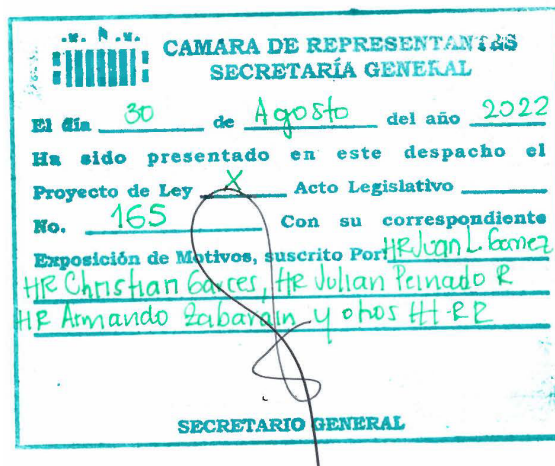 CAMARA DE REPRESENTANTES
SECRETARÍA GENERAL
El día 30 de Agosto del año 2022
Ha sido presentado en este despacho el
Proyecto de Ley X Acto Legislativo
No. 165 Con su correspondiente
Exposición de Motivos, suscrito Por HR Juan L. Gomez
HR Christian Garces, HR Julian Peinado R
HR Armando Zabarain y otros HH-RR
SECRETARIO GENERAL